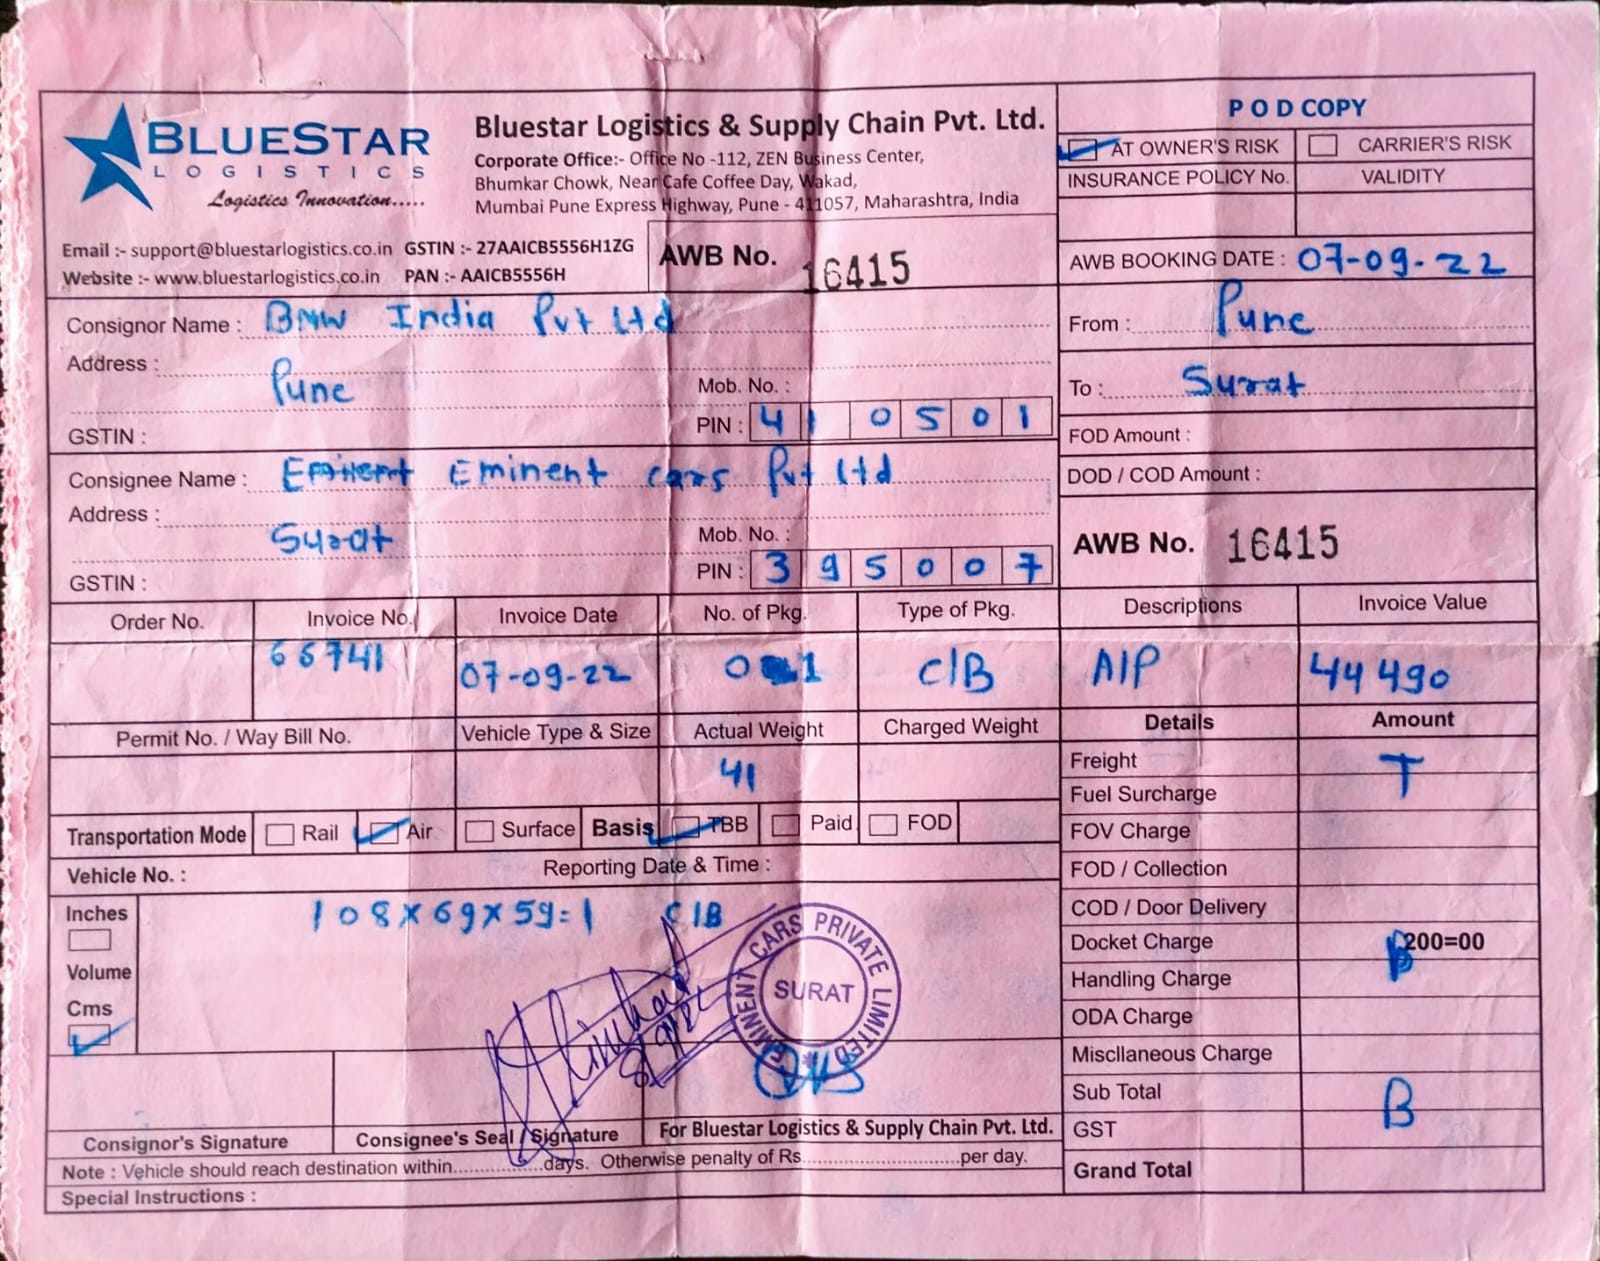 BLUESTAR
LOGISTICS
Logistics Innovation.....
Bluestar Logistics & Supply Chain Pvt. Ltd.
Corporate Office:- Office No -112, ZEN Business Center,
Bhumkar Chowk, Near Cafe Coffee Day, Wakad,
Mumbai Pune Express Highway, Pune - 411057, Maharashtra, India
Email :- support@bluestarlogistics.co.in GSTIN :- 27AAICB5556H1ZG
Website :- www.bluestarlogistics.co.in PAN :- AAICB5556H
AWB No. 16415
POD COPY
AT OWNER'S RISK CARRIER'S RISK
INSURANCE POLICY No. VALIDITY
AWB BOOKING DATE : 07-09-22
Consignor Name : BMW India Pvt Ltd
Address :
Pune
Mob. No. :
GSTIN :
PIN : 410501
From : Pune
To : Surat
FOD Amount :
DOD / COD Amount :
Consignee Name : Eminent Cars Pvt Ltd
Address :
Surat
Mob. No. :
GSTIN :
PIN : 395007
AWB No. 16415
Order No. Invoice No. Invoice Date No. of Pkg. Type of Pkg. Descriptions Invoice Value
66741 07-09-22 01 C/B A/P 44490
Permit No. / Way Bill No. Vehicle Type & Size Actual Weight Charged Weight Details Amount
41
Transportation Mode Rail Air Surface Basis TBB Paid FOD
Vehicle No. : Reporting Date & Time :
Inches
Volume
Cms
108x69x59=1 C/B
EMINENT CARS PRIVATE LIMITED
SURAT
Freight T
Fuel Surcharge
FOV Charge
FOD / Collection
COD / Door Delivery
Docket Charge 200=00
Handling Charge
ODA Charge
Miscllaneous Charge
Sub Total B
GST
Grand Total
Consignor's Signature Consignee's Seal / Signature For Bluestar Logistics & Supply Chain Pvt. Ltd.
Note : Vehicle should reach destination within.................days. Otherwise penalty of Rs..............................per day.
Special Instructions :